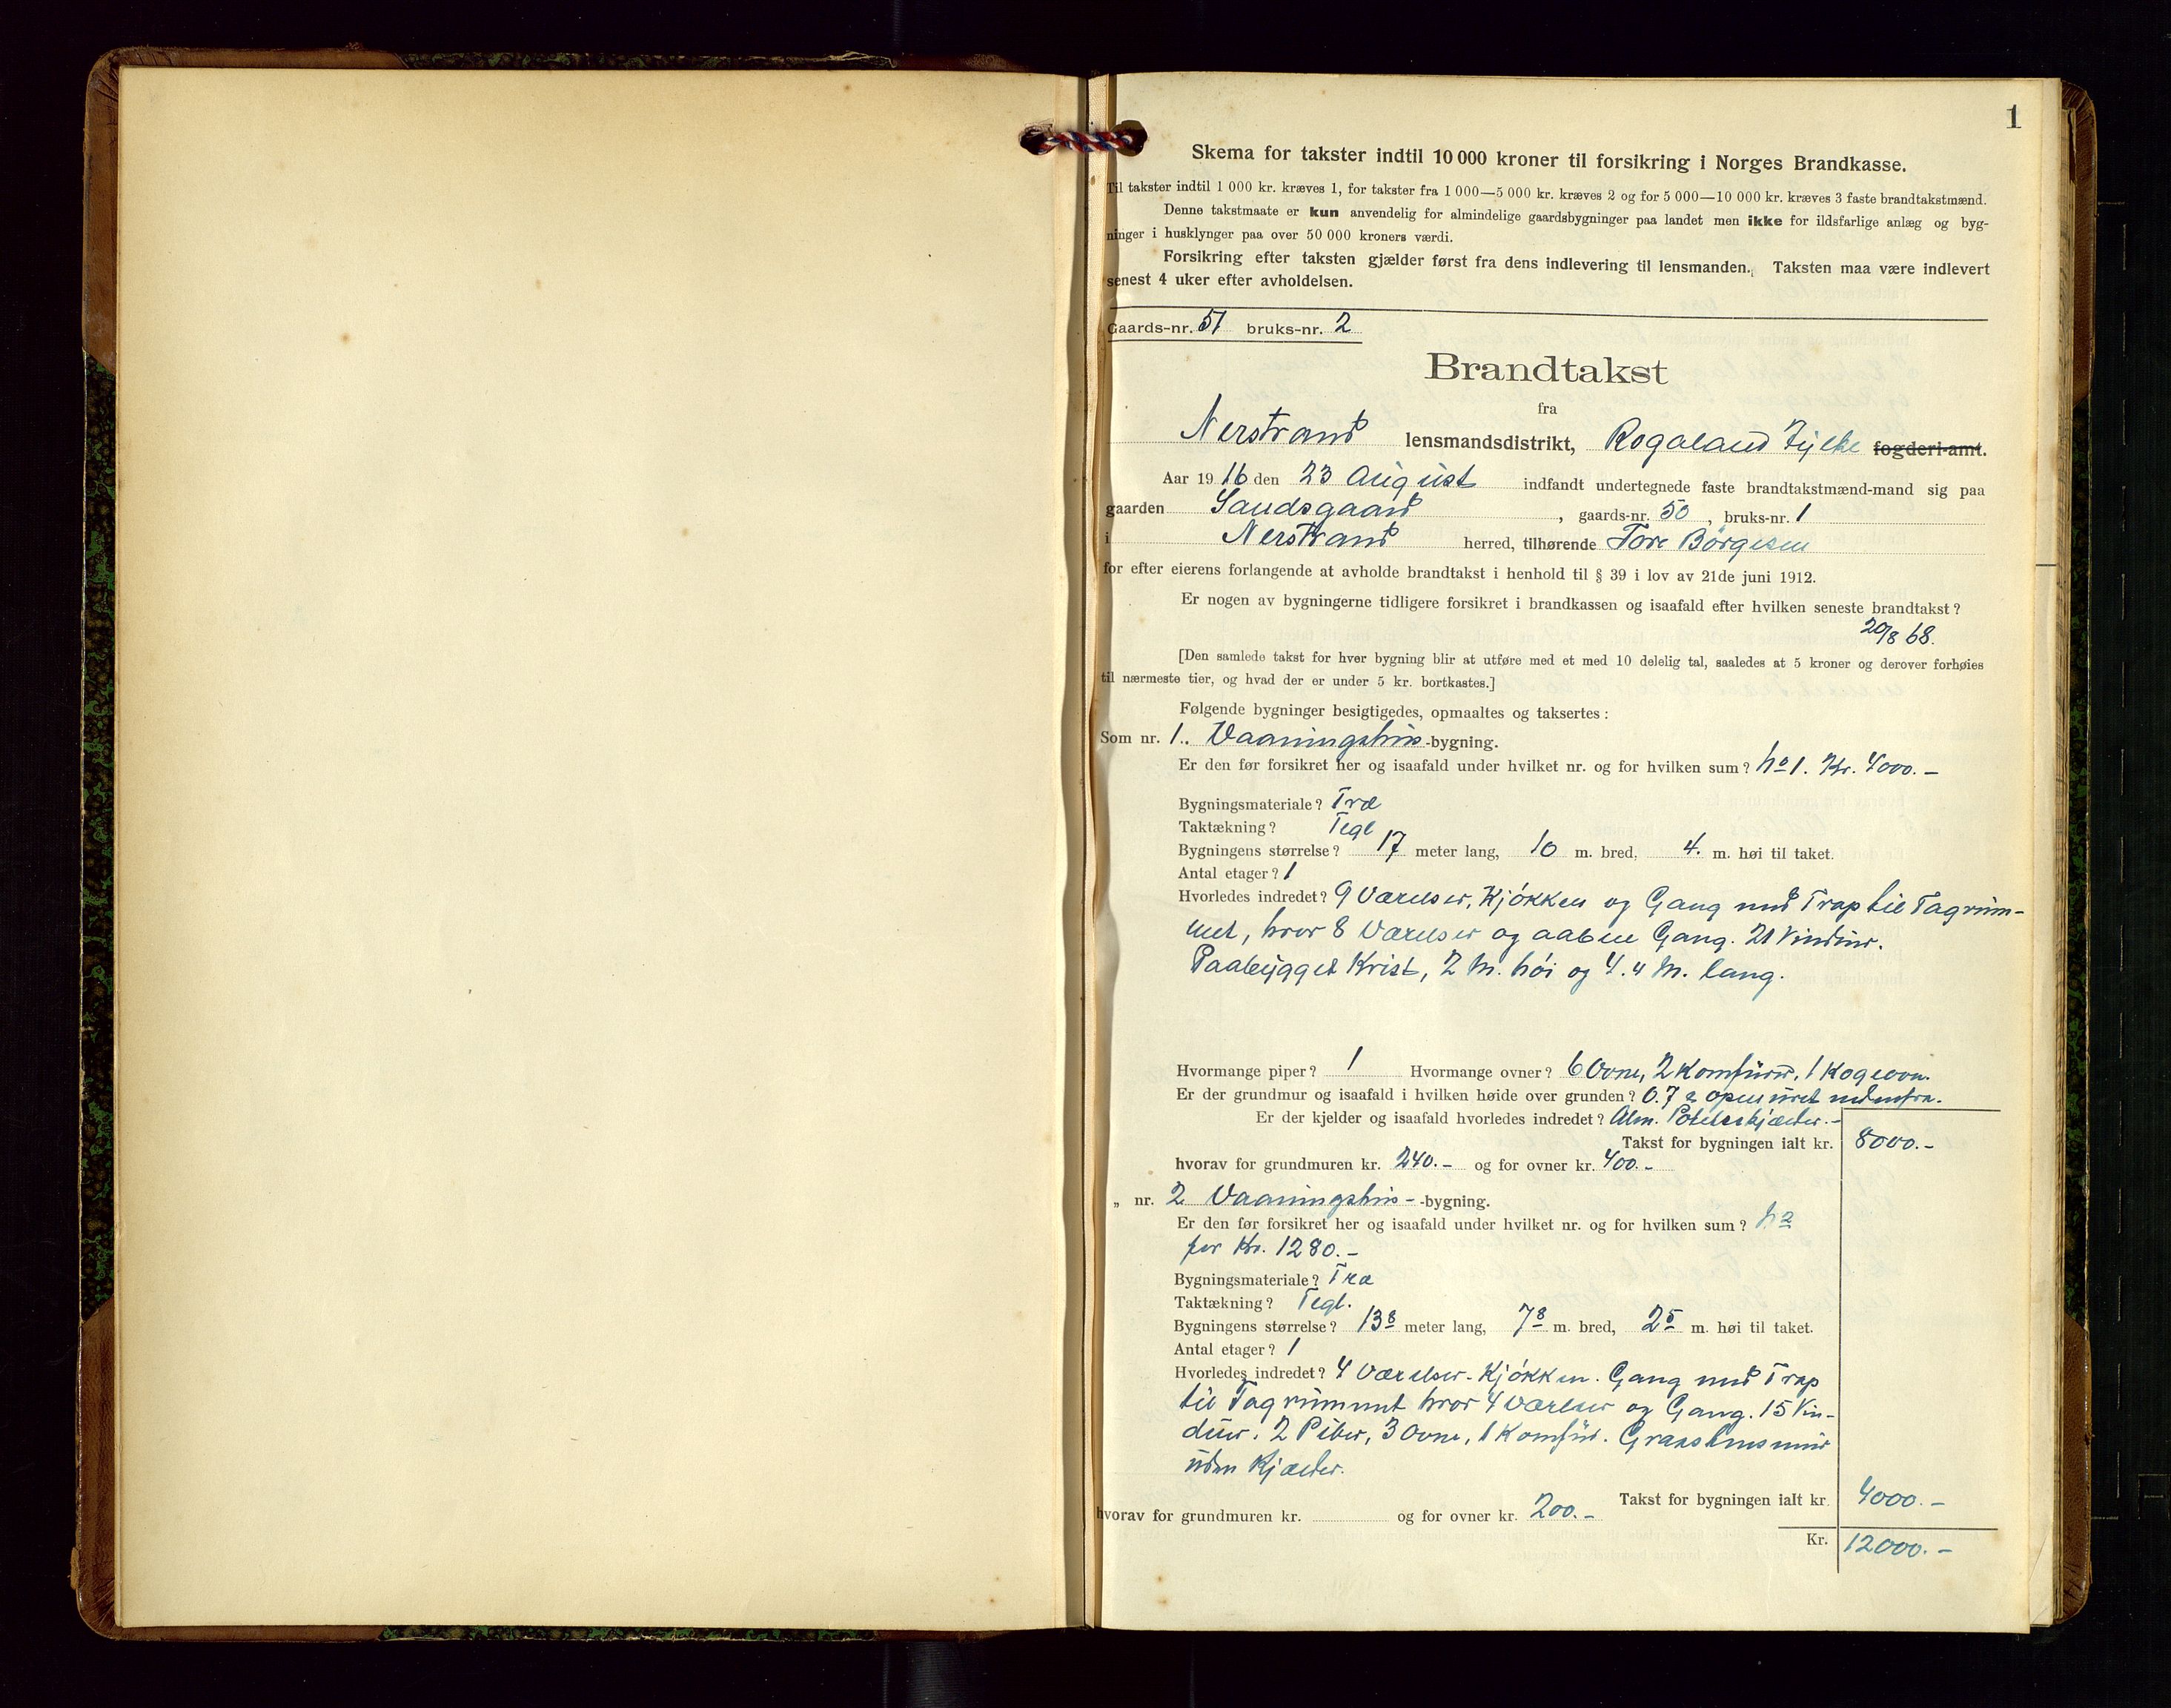 1
Skema for takster indtil 10 000 kroner til forsikring i Norges Brandkasse.
Til takster indtil 1 000 kr. kræves 1, for takster fra 1 000—5 000 kr. kræves 2 og for 5 000—10 000 kr. kræves 3 faste brandtakstmænd.
Denne takstmaate er kun anvendelig for almindelige gaardsbygninger paa landet men ikke for ildsfarlige anlæg og byg-
ninger i husklynger paa over 50 000 kroners værdi.
Forsikring efter taksten gjælder først fra dens indlevering til lensmanden. Taksten maa være indlevert
senest 4 uker efter avholdelsen.
Gaards-nr. 51 bruks-nr. 2
Brandtakst
fra
Nerstrand lensmandsdistrikt, Rogaland Fylke fogderi-amt.
Aar 1916 den 23 August indfandt undertegnede faste brandtakstmænd-mand sig paa
gaarden Sandsgaard, gaards-nr. 50, bruks-nr. 1
i Nerstrand herred, tilhørende Tore Börgesen
for efter eierens forlangende at avholde brandtakst i henhold til § 39 i lov av 21de juni 1912.
Er nogen av bygningerne tidligere forsikret i brandkassen og isaafald efter hvilken seneste brandtakst?
20/8 68.
[Den samlede takst for hver bygning blir at utføre med et med 10 delelig tal, saaledes at 5 kroner og derover forhøies
til nærmeste tier, og hvad der er under 5 kr. bortkastes.]
Følgende bygninger besigtigedes, opmaaltes og taksertes:
Som nr. 1. Vaaningshus-bygning.
Er den før forsikret her og isaafald under hvilket nr. og for hvilken sum? No 1. Kr. 4000.-
Bygningsmateriale? Træ
Taktækning? Tegl
Bygningens størrelse? 17 meter lang, 10 m. bred, 4. m. høi til taket.
Antal etager? 1
Hvorledes indredet? 9 Værelser, Kjökken og Gang med Trap til Tagrum-
met, hvor 8 Værelser og aaben Gang. 21 Vinduer.
Paabygget Krist, 2 M. höi og 4.4 M. lang.
Hvormange piper? 1 Hvormange ovner? 6 Ovne, 2 Komfurer, 1 Kogeovn.
Er der grundmur og isaafald i hvilken høide over grunden? 0.7 opmuret udenfra.
Er der kjelder og isaafald hvorledes indredet? Alm. Poteteskjælder.-
Takst for bygningen ialt kr. 8000.-
hvorav for grundmuren kr. 240.- og for ovner kr. 400.-
„ nr. 2 Vaaningshus--bygning.
Er den før forsikret her og isaafald under hvilket nr. og for hvilken sum? N 2
for Kr. 1280.-
Bygningsmateriale? Træ
Taktækning? Tegl.
Bygningens størrelse? 13 8 meter lang, 7 8 m. bred, 2 5 m. høi til taket.
Antal etager? 1
Hvorledes indredet? 4 Værelser. Kjökken. Gang med Trap
til Tagrummet hvor 4 Værelser og Gang. 15 Vin-
duer. 2 Piber, 3 Ovne, 1 Komfur. Graastensmur
uden Kjælder.
Takst for bygningen ialt kr. 4000.-
hvorav for grundmuren kr. og for ovner kr. 200.-
Kr. 12000.-